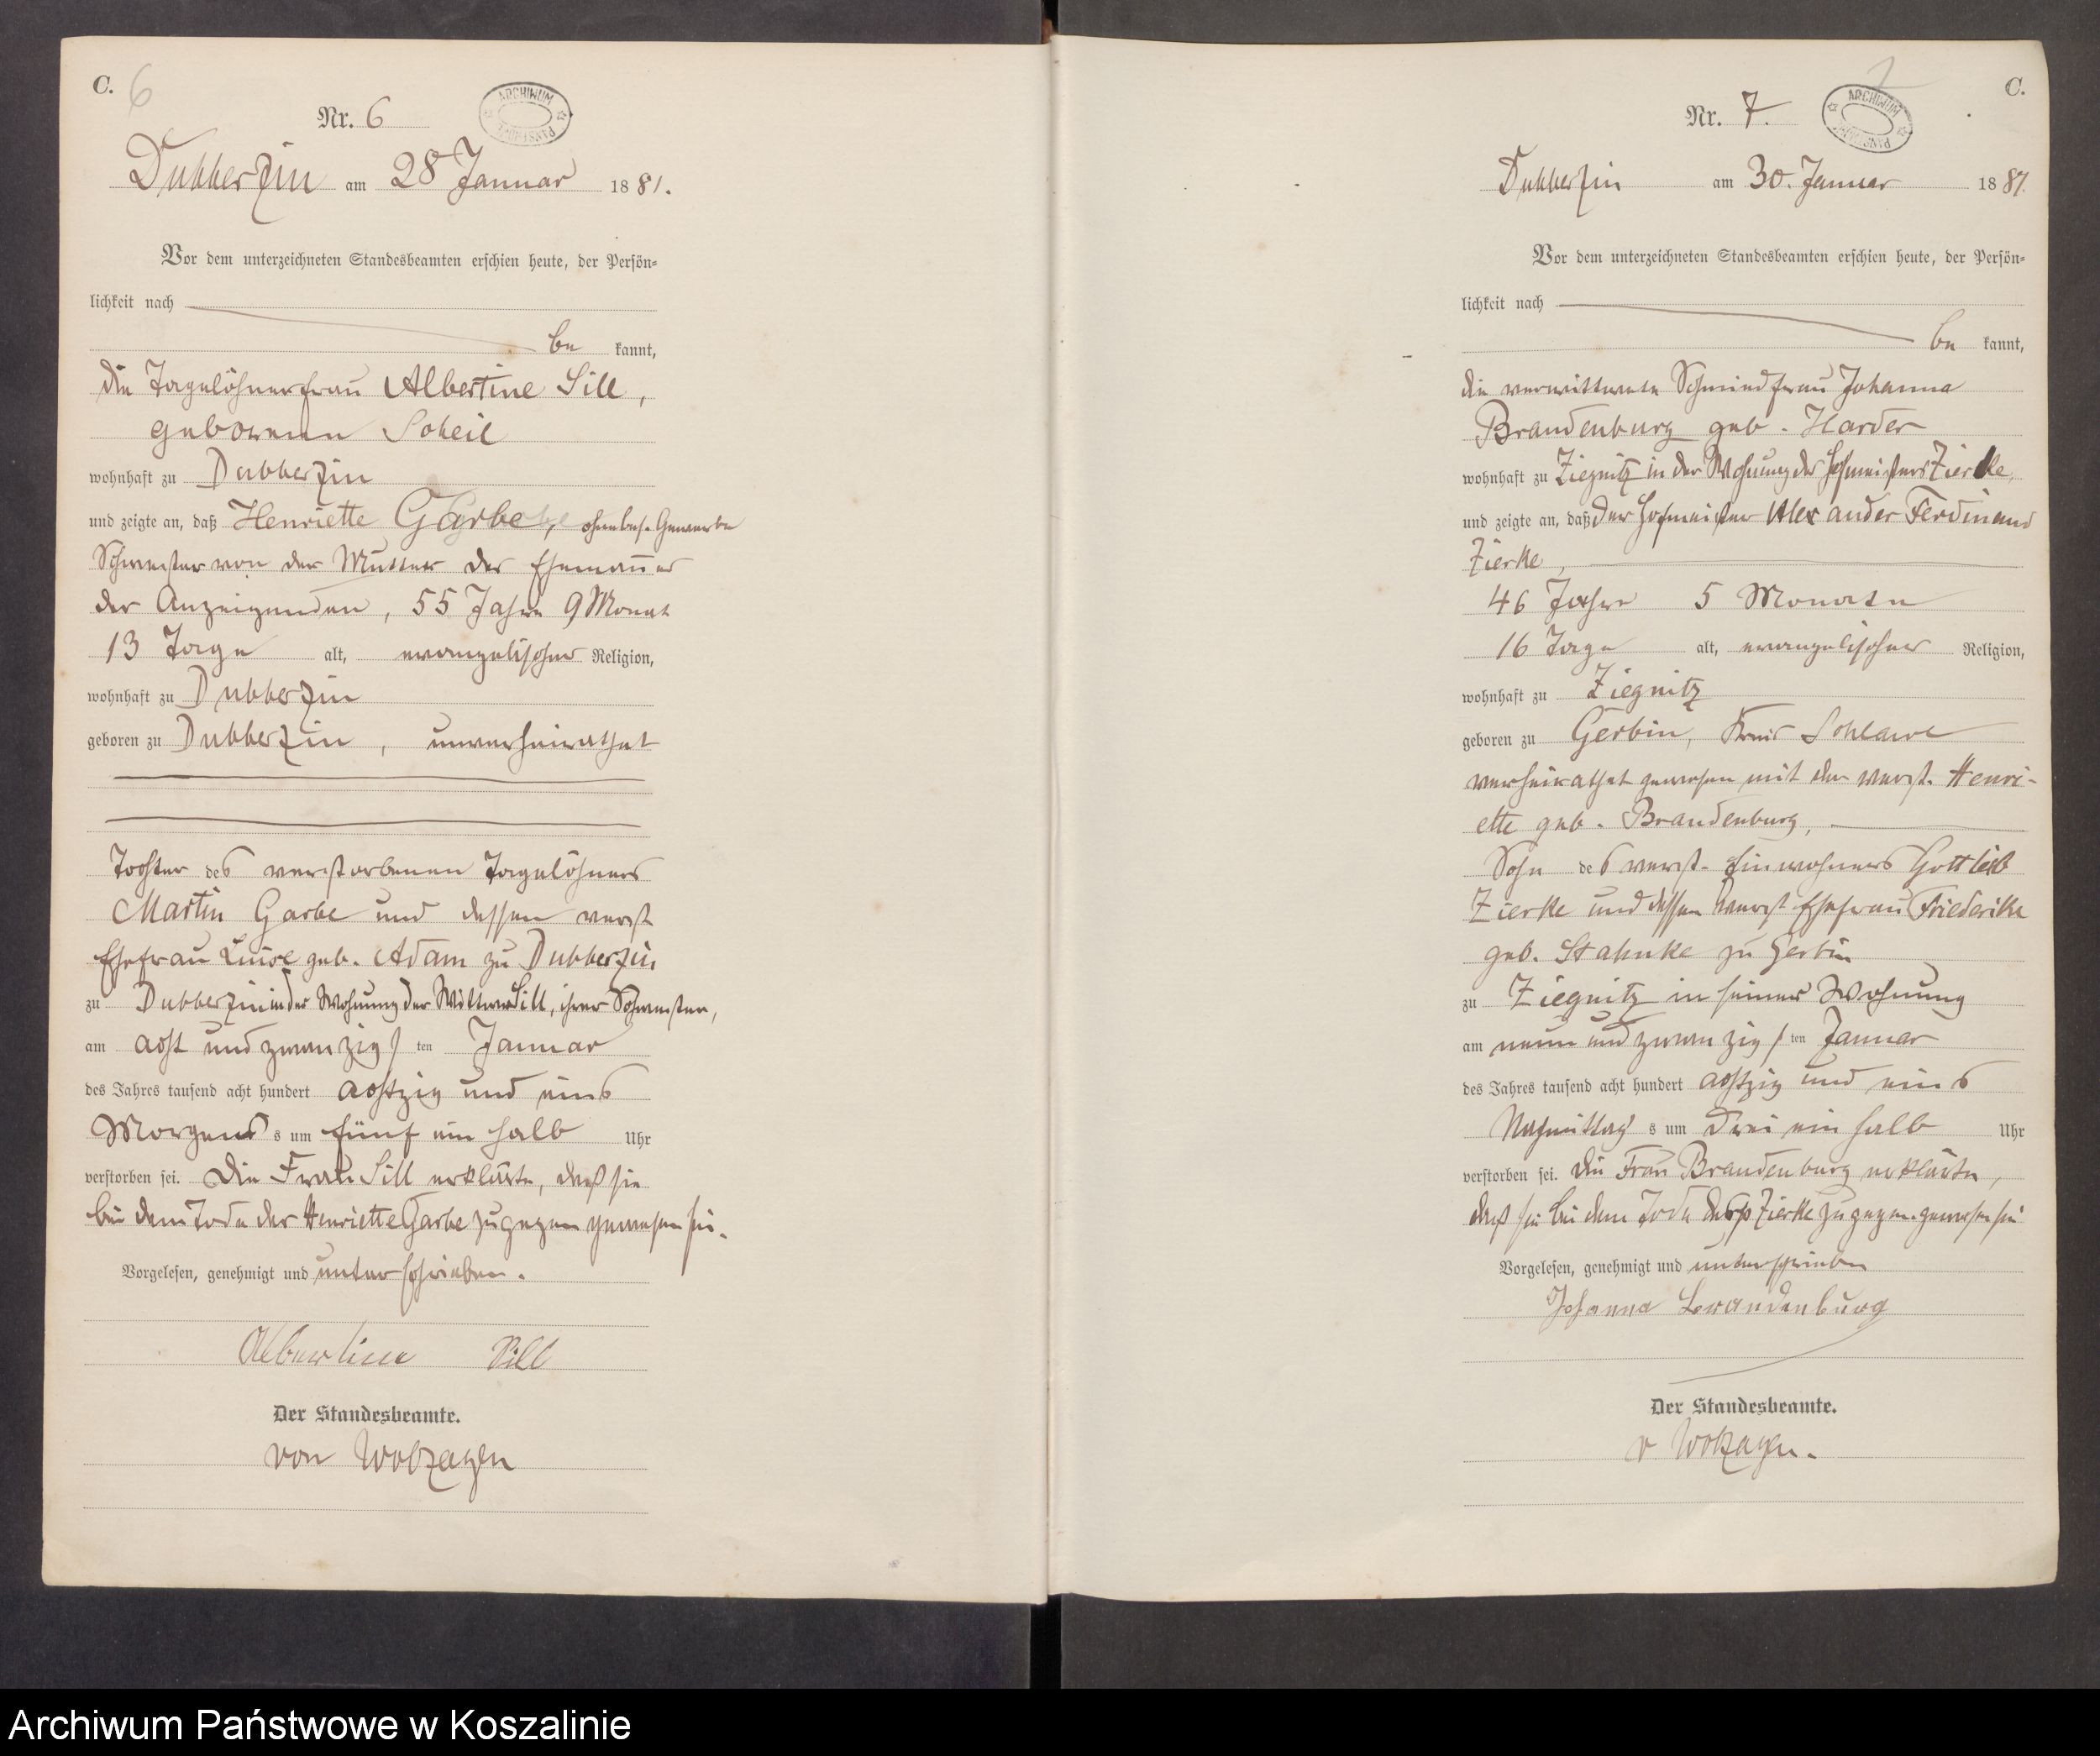 C. 6
Nr. 6
ARCHIWUM PAŃSTWOWE
Dubberzin am 28 Januar 1881.
Vor dem unterzeichneten Standesbeamten erschien heute, der Persön-
lichkeit nach
be kannt,
die Tagelöhnerfrau Albertine Sill,
geborenen Scheil
wohnhaft zu Dubberzin
und zeigte an, daß Henriette Garbe, ohne bes. Gewerbe
Schwester von der Mutter des Ehemannes
der Anzeigenden, 55 Jahre 9 Monat
13 Tage alt, evangelischer Religion,
wohnhaft zu Dubberzin
geboren zu Dubberzin, unverheirathet
Tochter des verstorbenen Tagelöhners
Martin Garbe und dessen verst
Ehefrau Luise geb. Adam zu Dubberzin
zu Dubberzin in der Wohnung der Wittwe Sill, ihrer Schwester,
am acht und zwanzigs ten Januar
des Jahres tausend acht hundert achtzig und eins
Morgens s um fünf ein halb Uhr
verstorben sei. Die Frau Sill erklärte, daß sie
bei dem Tode der Henriette Garbe zugegen gewesen sei.
Vorgelesen, genehmigt und unterschrieben.
Albertine Sill
Der Standesbeamte.
von Woltzagen
C.
Nr. 7.
ARCHIWUM PAŃSTWOWE
Dubberzin am 30. Januar 1881.
Vor dem unterzeichneten Standesbeamten erschien heute, der Persön-
lichkeit nach
be kannt,
die verwittwete Schmiedfrau Johanna
Brandenburg geb. Harder
wohnhaft zu Ziegnitz in der Wohnung des Hofmeisters Zierke,
und zeigte an, daß der Hofmeister Alexander Ferdinand
Zierke,
46 Jahre 5 Monate
16 Tage alt, evangelischer Religion,
wohnhaft zu Ziegnitz
geboren zu Gerbin, Kreis Schlawe
verheirathet gewesen mit der verst. Henri-
ette geb. Brandenburg,
Sohn des verst. Einwohners Gottlieb
Zierke und dessen verst Ehefrau Friederike
geb. Stahnke zu Gerbin
zu Ziegnitz in seiner Wohnung
am neun und zwanzigs ten Januar
des Jahres tausend acht hundert achtzig und eins
Nachmittag s um drei ein halb Uhr
verstorben sei. Die Frau Brandenburg erklärte,
daß sie bei dem Tode des p Zierke zugegen gewesen sei
Vorgelesen, genehmigt und unterschrieben
Johanna Brandenburg
Der Standesbeamte.
v Woltzagen.
Archiwum Państwowe w Koszalinie